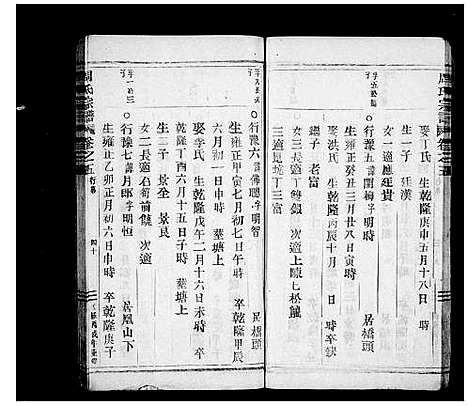 周氏宗譜 卷之五
娶丁氏 生乾隆庚申五月十八日 時
一子 廷漢
女一適應廷貴
行豫五 壽開梅 字明時 居橋頭
生雍正癸丑三月廿八日寅時
娶洪氏 生乾隆丙辰十月 日 時卒缺
繼子 老富
女三 長適丁雙銀 次適上陳七松龍
三適見坑丁三富
行豫六 壽傳聰 字明智 居橋頭
生雍正甲寅七月初七日午時 卒乾隆甲辰
六月初一日申時 墓塘上
娶李氏 生乾隆戊午二月十六日未時 卒
乾隆丁酉六月十五日子時 墓塘上
二子 景全 景良
女二 長適石荀前饒 次適
行豫七 壽月郎 字明恒 居鳳山下
生雍正乙卯正月初六日申時 卒乾隆庚子
周氏宗譜 卷之五 行第 四十